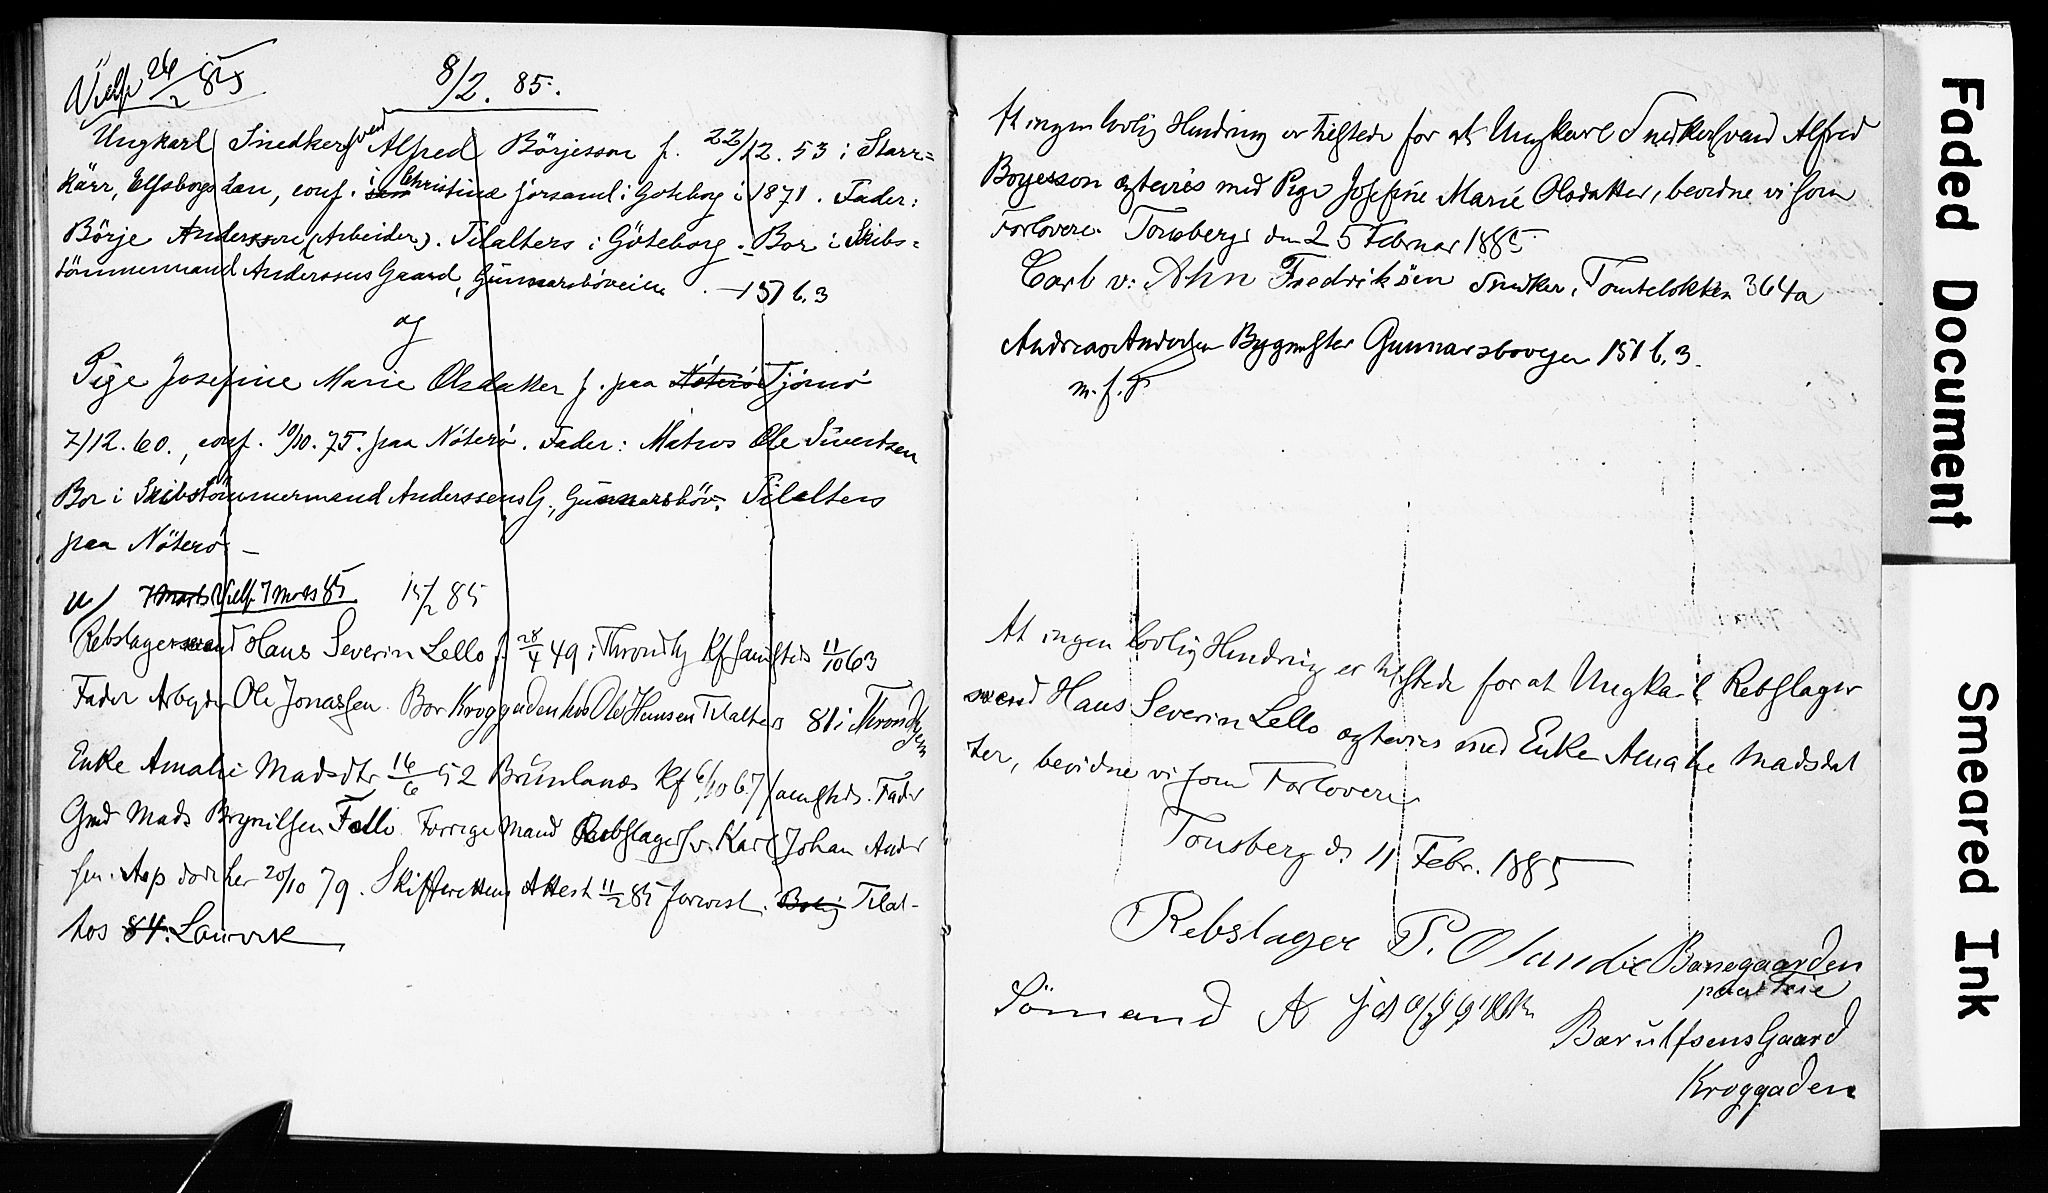 Vielse 26/2 85
8/2. 85.
Ungkarl Snedkersvend Alfred Börjesson f. 22/12. 53 i Starr=
kärr, Elfsborgs Län, conf. i Christinæ forsaml. i Göteborg i 1871. Fader:
Börje Andersson (Arbeider). Tilalters i Göteborg. - Bor i Skibs=
tömmermand Anderssens Gaard, Gunnarsböveien. - 151 b. 3
og
Pige Josefine Marie Olsdatter f. paa Nöterö Tjömö
7/12. 60., conf. 10/10. 75. paa Nöterö. Fader: Matros Ole Sivertsen
Bor i Skibstömmermand Anderssens G., Gunnarsböv. Tilalters
paa Nöterö. -
7 Marts Vielse 7 Marts 85 15/2 85
Rebslagersvend Hans Severin Lello f. 28/4 49 i Throndhj Kf samsteds 11/10 63
Fader Arbeyder Ole Jonassen. Bor Kroggaden hos Ole Hansen Tilalters 81 i Throndhjem
Enke Amalie Madsdtr 16/6 52 Brunlanæs Kf 6/10 67 samsteds. Fader
Gmd Mads Brynilsen Follo. Forrige Mand Rebslagersv. Karl Johan Ander
sen. Asp döde her 20/10 79. Skifterettens Attest 11/2 85 forevist. Bolig Tilal-
ters 84. Laurvik
At ingen lovlig Hindring er tilstede for at Ungkarl Snedkersvend Alfred
Boyesson ægtevies med Pige Josefine Marie Olsdatter, bevidne vi som
Forlovere. Tonsberg den 25 Februar 1885
Carl v: Ahn Fredriksen Snedker, Tomteløkken 364a
Andreas Andersen Bygmester Gunnarsboveyen 151 b. 3.
m. f. P
At ingen lovlig Hindring er tilstede for at Ungkarl Rebslager
svend Hans Severin Lello ægtevies med Enke Amalie Madsdat
ter, bevidne vi som Forlovere
Tonsberg d. 11 Febr. 1885
Rebslager P. Olandæ Banegaarden
paa Teie
Sömand A
Bærulfsens Gaard
Kroggaden
Faded Document
Smeared Ink